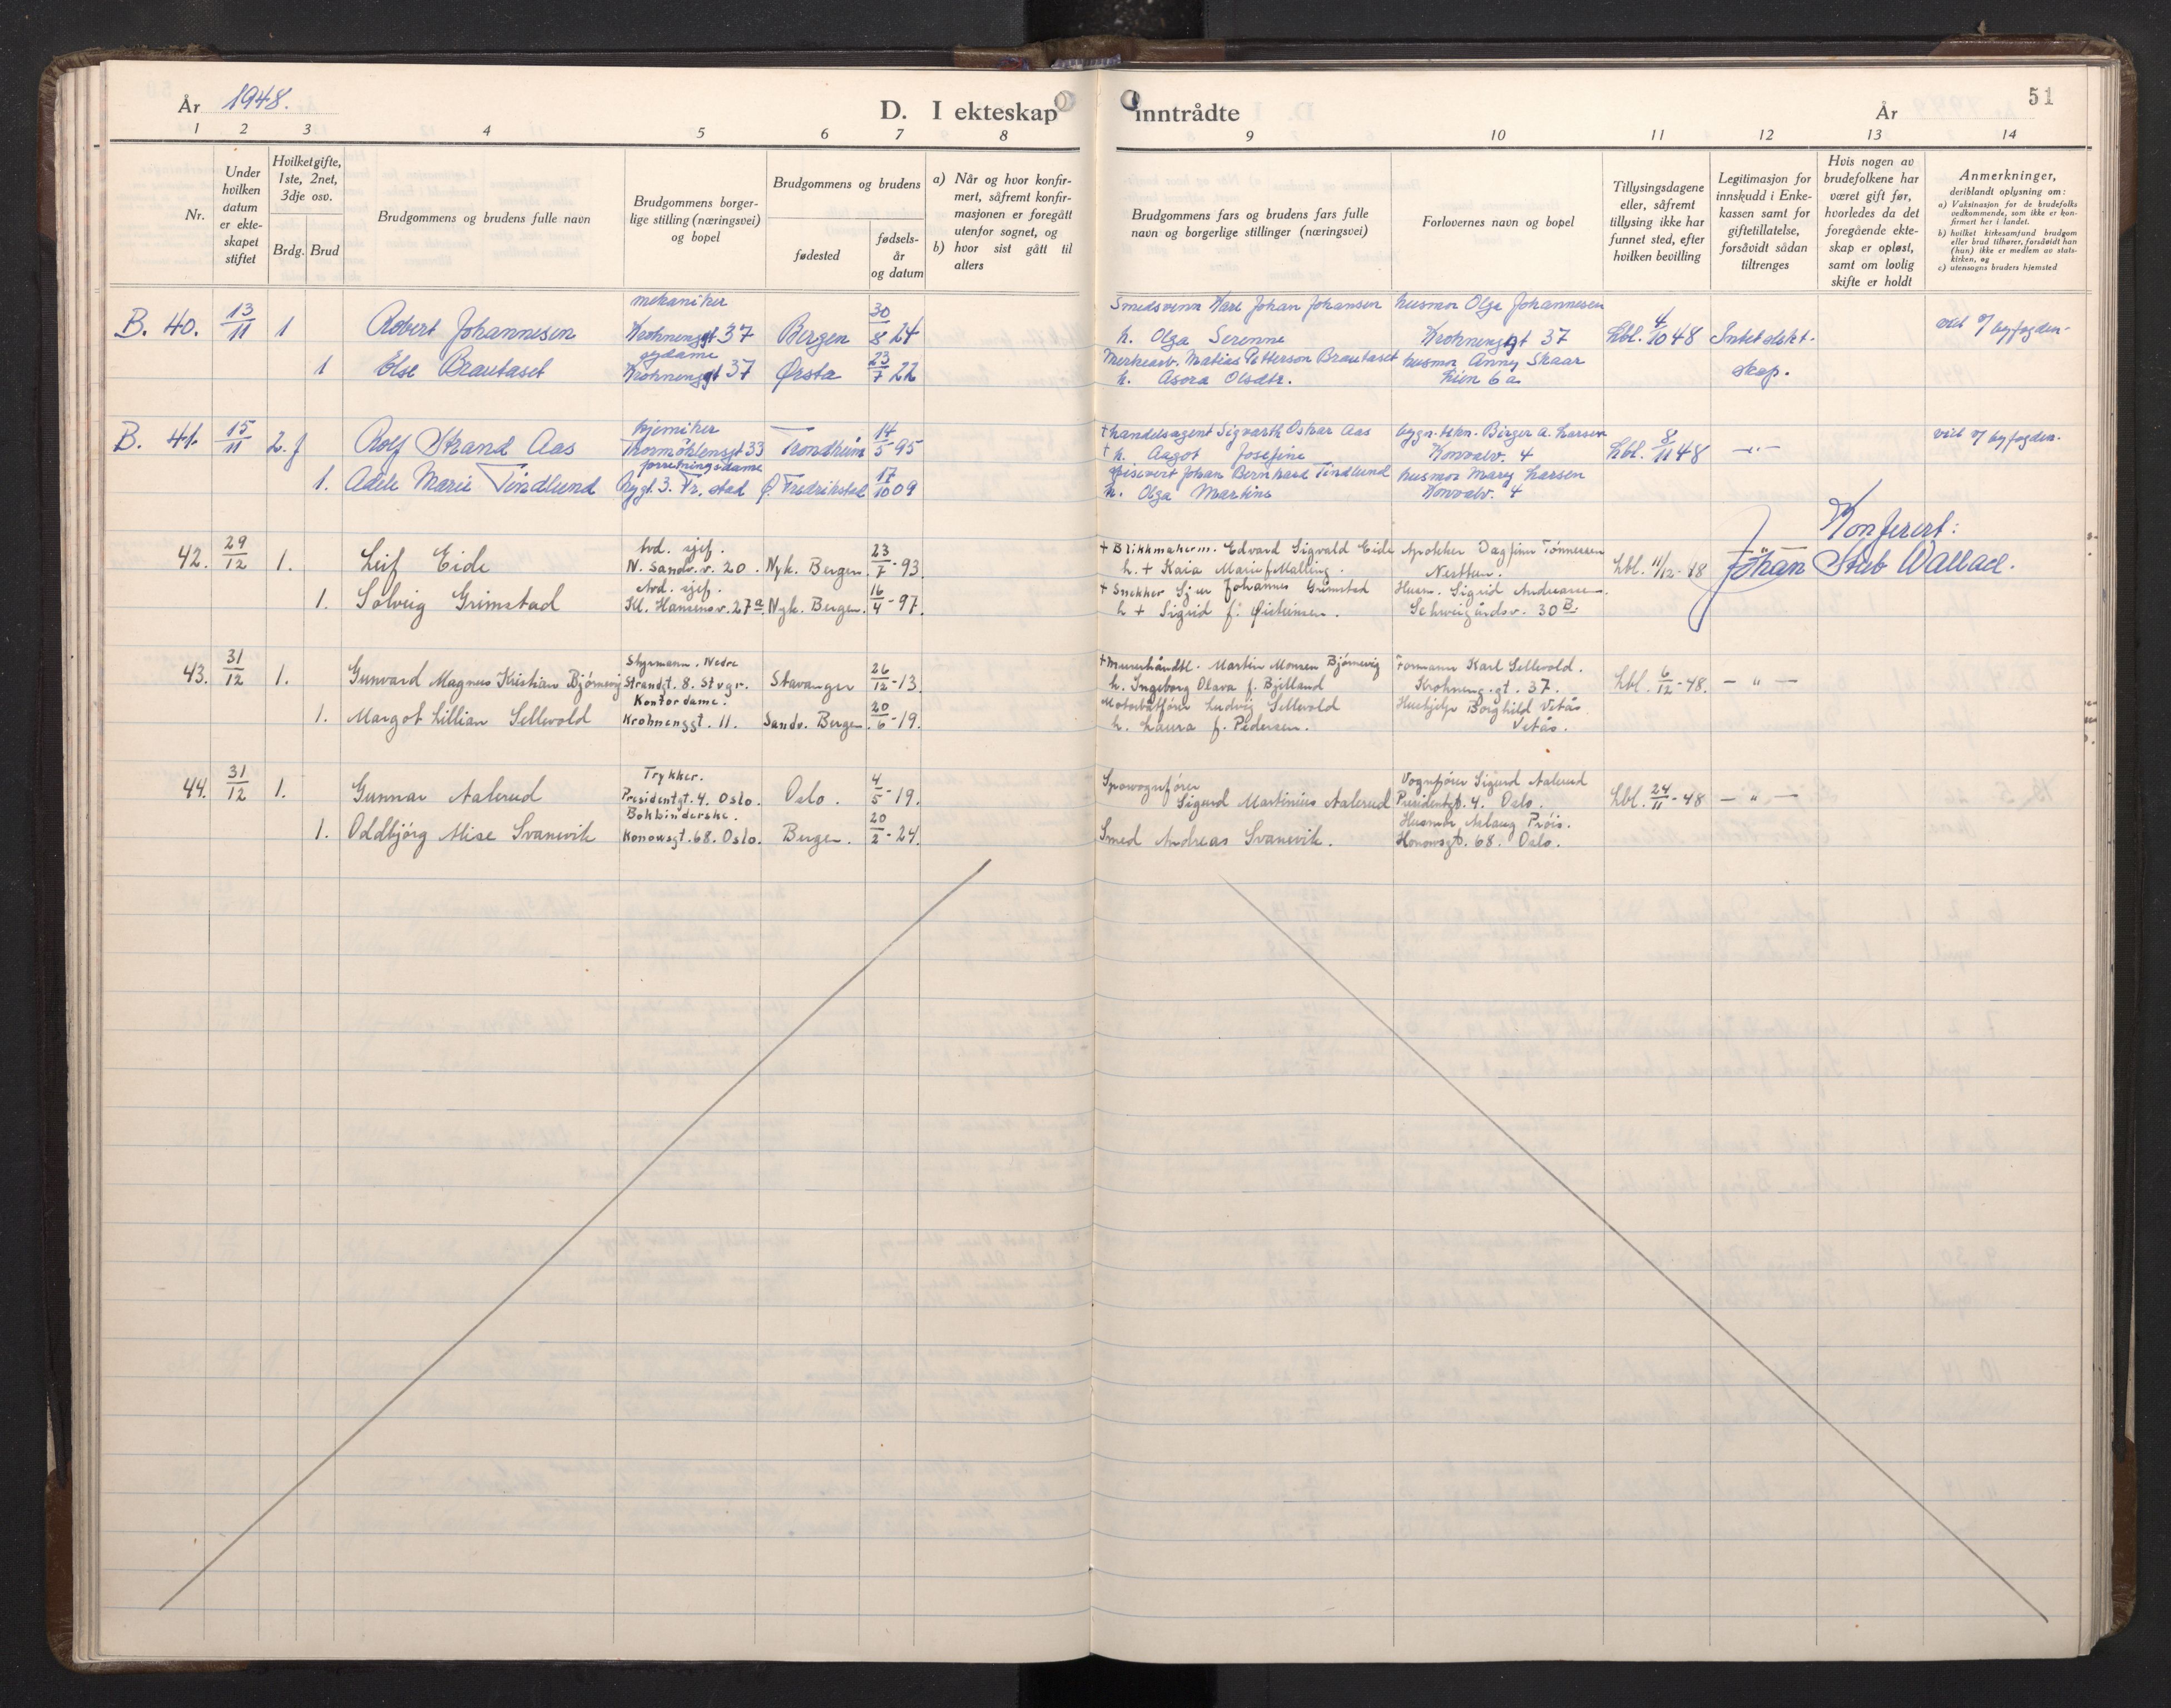 År 1948.
D. I ekteskap inntrådte
År
51
1 2 3 4 5 6 7 8 9 10 11 12 13 14
Nr.
Under hvilken datum er ekteskapet stiftet
Hvilket gifte, 1ste, 2net, 3dje osv.
Brdg. Brud
Brudgommens og brudens fulle navn
Brudgommens borgerlige stilling (næringsvei) og bopel
Brudgommens og brudens
fødested
fødselsår og datum
a) Når og hvor konfirmert, såfremt konfirmasjonen er foregått utenfor sognet, og
b) hvor sist gått til alters
Brudgommens fars og brudens fars fulle navn og borgerlige stillinger (næringsvei)
Forlovernes navn og bopel
Tillysingsdagene eller, såfremt tillysing ikke har funnet sted, efter hvilken bevilling
Legitimasjon for innskudd i Enkekassen samt for giftetillatelse, forsåvidt sådan tiltrenges
Hvis nogen av brudefolkene har været gift før, hvorledes da det foregående ekteskap er opløst, samt om lovlig skifte er holdt
Anmerkninger,
deriblandt oplysning om:
a) Vaksinasjon for de brudefolks vedkommende, som ikke er konfirmert her i landet.
b) hvilket kirkesamfund brudgom eller brud tilhører, forsåvidt han (hun) ikke er medlem av statskirken, og
c) utensogns bruders hjemsted
mekaniker Smedsvenn Karl Johan Johansen husmor Olga Johannesen
B. 40. 13/11 1 Robert Johannesen Krohnengst 37 Bergen 30/8 24 h. Olga Serenne Krohnengst 37 Lbl. 4/10 48 Intet slekt- viet v/ byfogden.
1 Else Brautaset Krohnengst 37 Ørsta 23/7 22 Matias Petterson Brautaset husmor Anny Skaar skap.
h. Asora Olsdtr. 6a
kjemiker + handelsagent Sigvarth Oskar Aas bygn. tekn. Birger A. Larsen
B. 41. 15/11 2. f Rolf Strand Aas Thormøhlensgt 33 Trondheim 14/5 95 + h. Aagot Josefine Konvalv. 4 Lbl. 8/11 48 — " — viet v/ byfogden.
forretningsdame Johan Bernhard Tindlund husmor Mary Larsen
1. Adele Marie Tindlund Rygt. 3. Fr. stad Ø. Fredrikstad 17/10 09 h. Olga Martine Konvalv. 4
Konferert:
Avd. sjef. + Blikkmakerm. Edvard Sigvald Eide Apoteker Dagfinn Tønnessen
42. 29/12 1. Leif Eide N. Sandv. v. 20. Nyk. Bergen. 23/7-93. h. + Kaia Marie f. Malling. Nesttun. Lbl. 11/12-48 — " — Johan Stub Wallad.
Avd. sjef. + Snekker Sjur Johannes Grimstad Husm. Sigrid Andreassen.
1. Solveig Grimstad Kl. Hansens v. 27a. Nyk. Bergen. 16/4-97. h + Sigrid f. Øisteinsen. Schweigårdsv. 30B.
Styrmann. Nedre + Murerhåndtl. Martin Monsen Bjørnevig Formann Karl Sellevold.
43. 31/12 1. Gunvard Magnus Kristian Bjørnevig Strandgt. 8. Stvgr. Stavanger 26/12-13. h. Ingeborg Olava f. Bjelland Krohneng.gt. 37. Lbl. 6/12-48. — " —
Kontordame. Motorbåtfører Ludvig Sellevold Hushjelp Borghild Vetås
1. Margot Lillian Sellevold Krohnengst. 11. Sandv. Bergen. 20/6-19. h. Laura f. Pedersen. Vetås.
Trykker. Sporvognfører Vognfører Sigurd Aalerud
44. 31/12 1. Gunnar Aalerud Presidentgt. 4. Oslo. Oslo. 4/5-19. Sigurd Martinius Aalerud Presidentgt. 4. Oslo. Lbl. 24/11-48 — " —
Bokbinderske. Husmor Aslaug Prøis.
1. Oddbjørg Alise Svanevik Konowsgt. 68. Oslo. Bergen. 20/2-24. Smed Andreas Svanevik. Konowsgt. 68. Oslo.